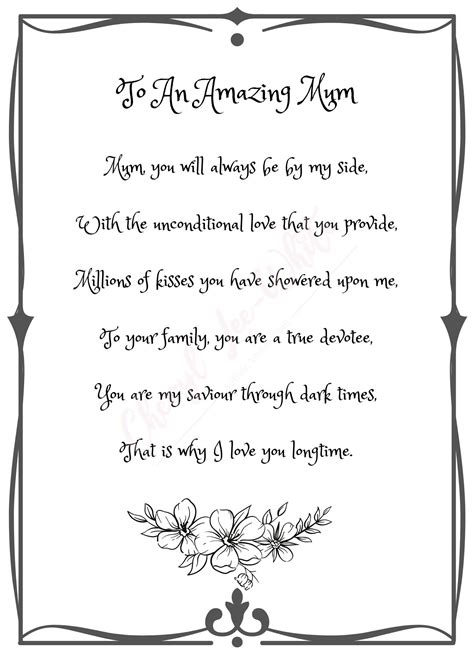 To An Amazing Mum
Mum, you will always be by my side,
With the unconditional love that you provide,
Millions of kisses you have showered upon me,
To your family, you are a true devotee,
You are my saviour through dark times,
That is why I love you longtime.